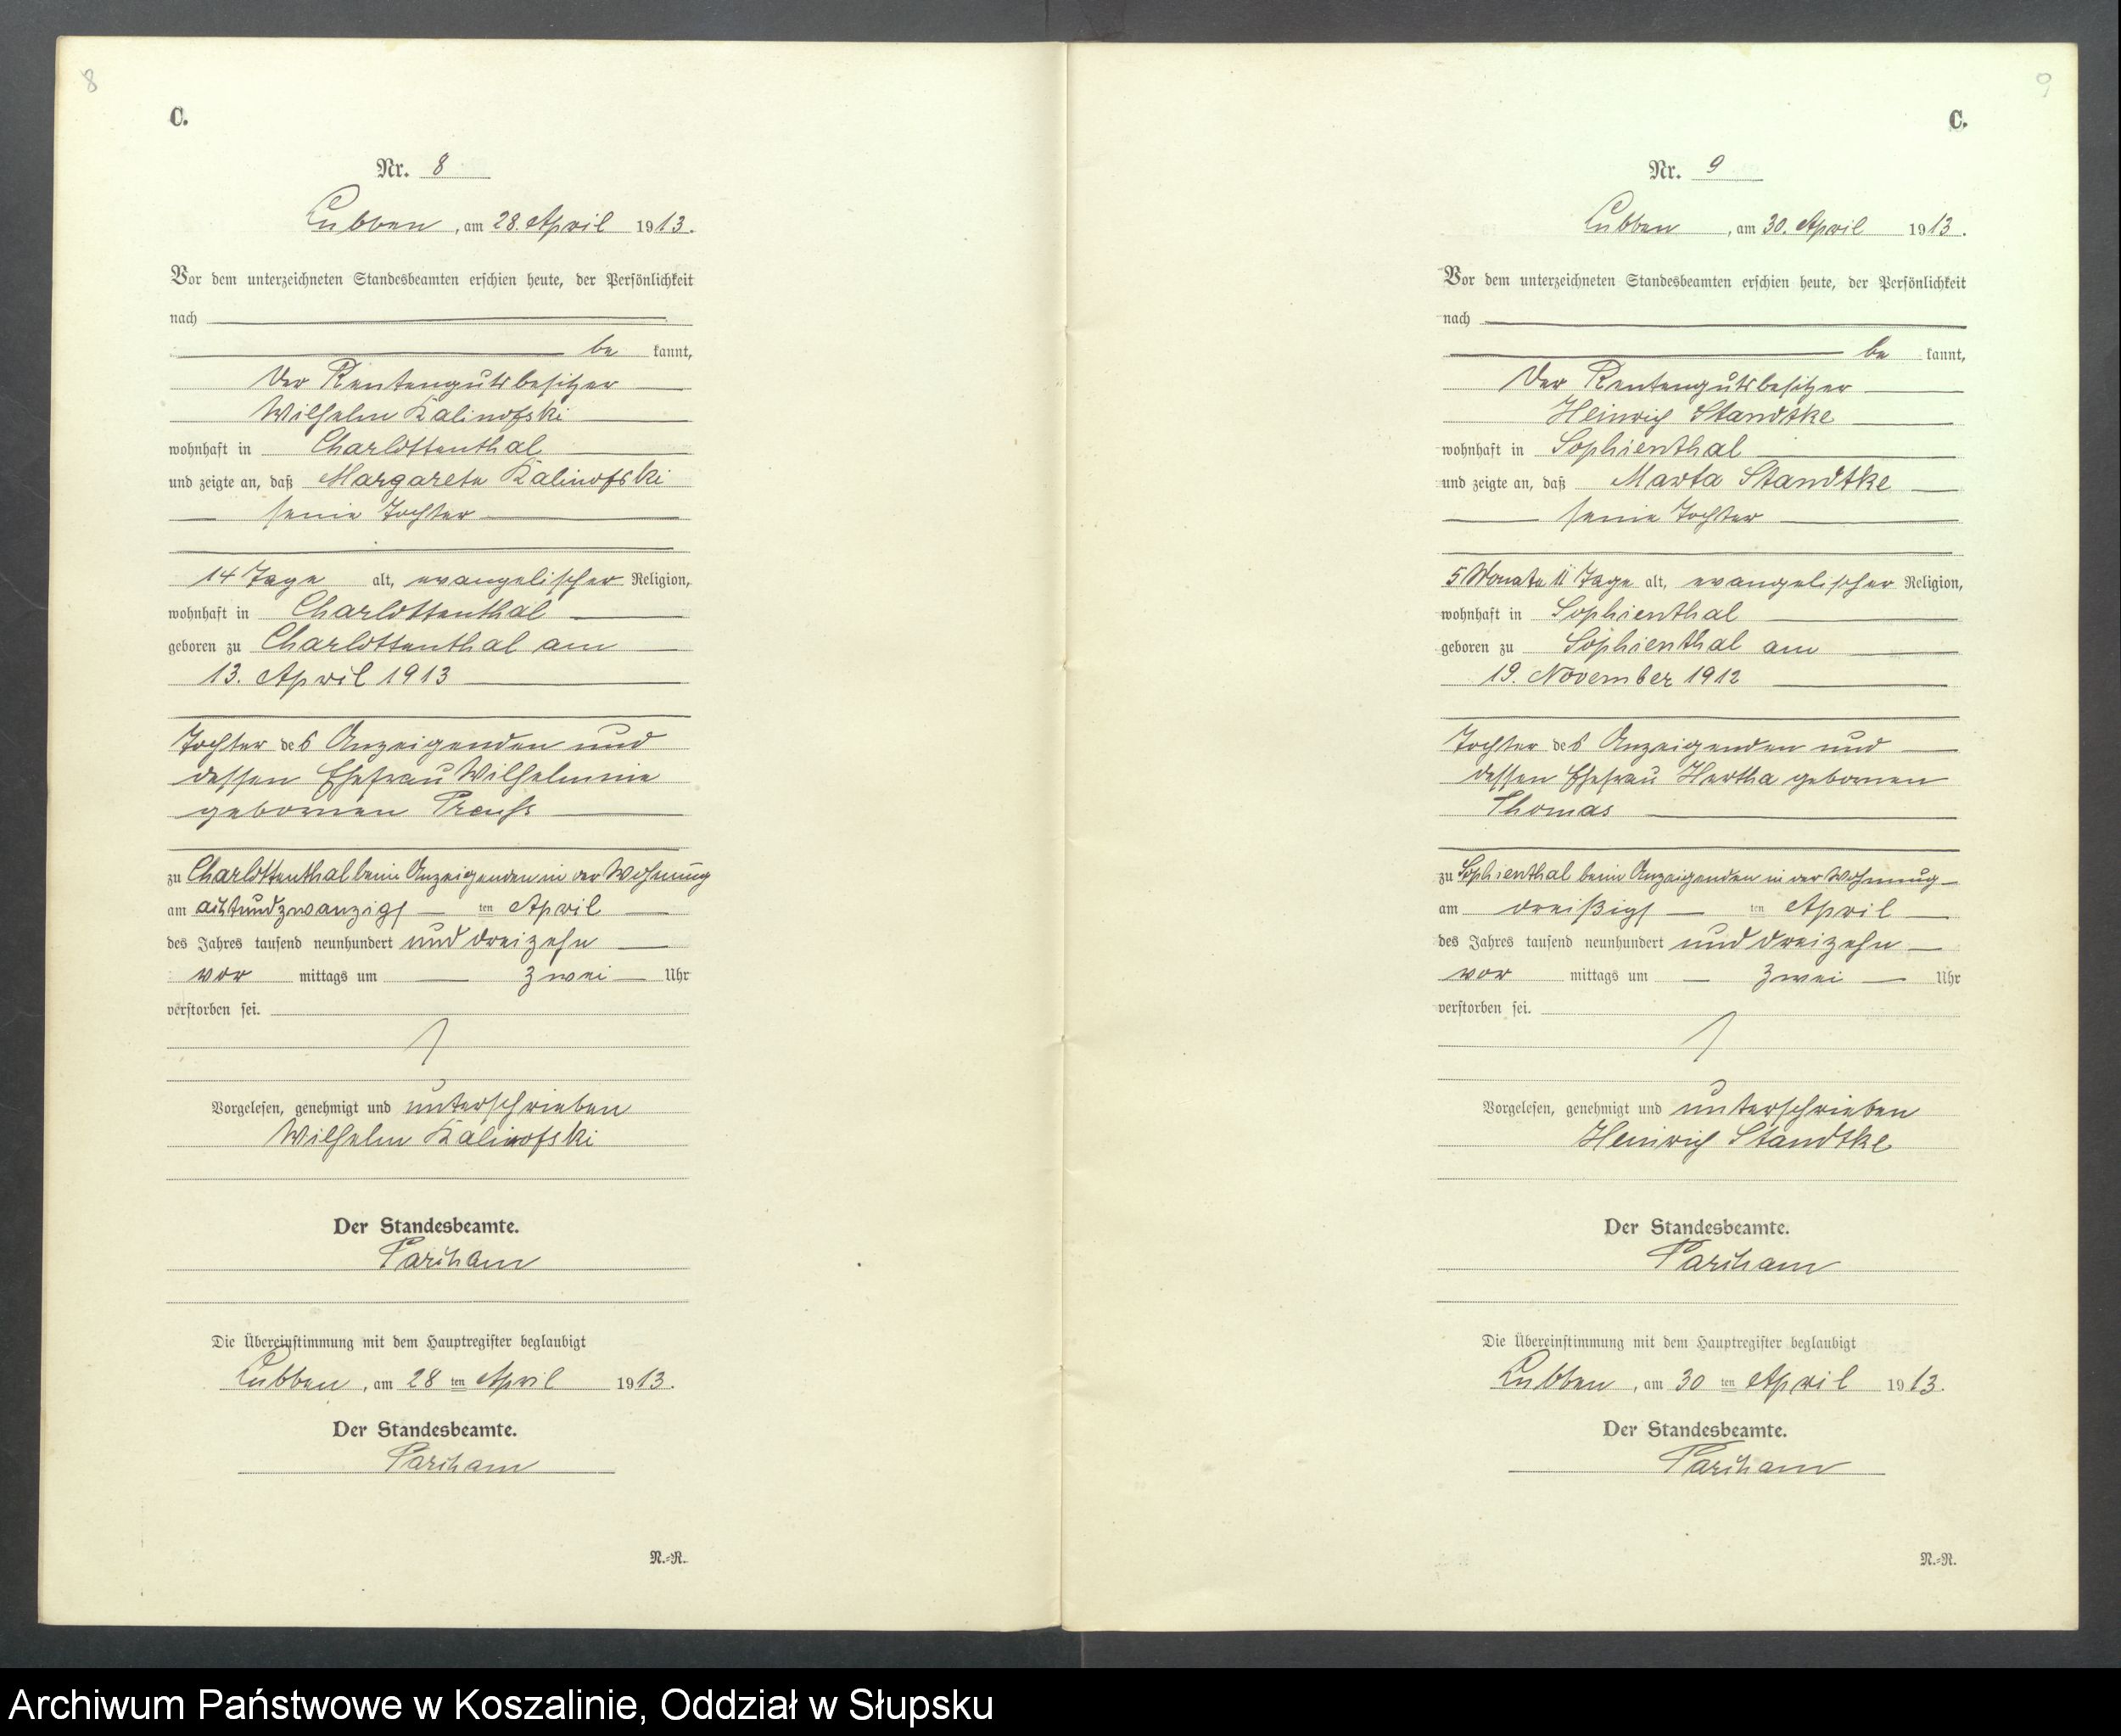 8
C.
Nr. 8
Lubben, am 28. April 1913.
Vor dem unterzeichneten Standesbeamten erschien heute, der Persönlichkeit
nach
be kannt,
der Rentengutsbesitzer
Wilhelm Kalinofski
wohnhaft in Charlottenthal
und zeigte an, daß Margarete Kalinofski
seine Tochter
14 Tage alt, evangelischer Religion,
wohnhaft in Charlottenthal
geboren zu Charlottenthal am
13. April 1913
Tochter des Anzeigenden und
dessen Ehefrau Wilhelmine
gebornen Preuß
zu Charlottenthal beim Anzeigenden in der Wohnung
am achtundzwanzigs ten April
des Jahres tausend neunhundert und dreizehn
vor mittags um zwei Uhr
verstorben sei.
Vorgelesen, genehmigt und unterschrieben
Wilhelm Kalinofski
Der Standesbeamte.
Parcham
Die Übereinstimmung mit dem Hauptregister beglaubigt
Lubben, am 28 ten April 1913.
Der Standesbeamte.
Parcham
N.=R.
9
C.
Nr. 9
Lubben, am 30. April 1913.
Vor dem unterzeichneten Standesbeamten erschien heute, der Persönlichkeit
nach
be kannt,
der Rentengutsbesitzer
Heinrich Standtke
wohnhaft in Sophienthal
und zeigte an, daß Marta Standtke
seine Tochter
5 Monate 11 Tage alt, evangelischer Religion,
wohnhaft in Sophienthal
geboren zu Sophienthal am
19. November 1912
Tochter des Anzeigenden und
dessen Ehefrau Hertha gebornen
Thomas
zu Sophienthal beim Anzeigenden in der Wohnung
am dreißigs ten April
des Jahres tausend neunhundert und dreizehn
vor mittags um zwei Uhr
verstorben sei.
Vorgelesen, genehmigt und unterschrieben
Heinrich Standtke
Der Standesbeamte.
Parcham
Die Übereinstimmung mit dem Hauptregister beglaubigt
Lubben, am 30 ten April 1913.
Der Standesbeamte.
Parcham
N.=R.
Archiwum Państwowe w Koszalinie, Oddział w Słupsku